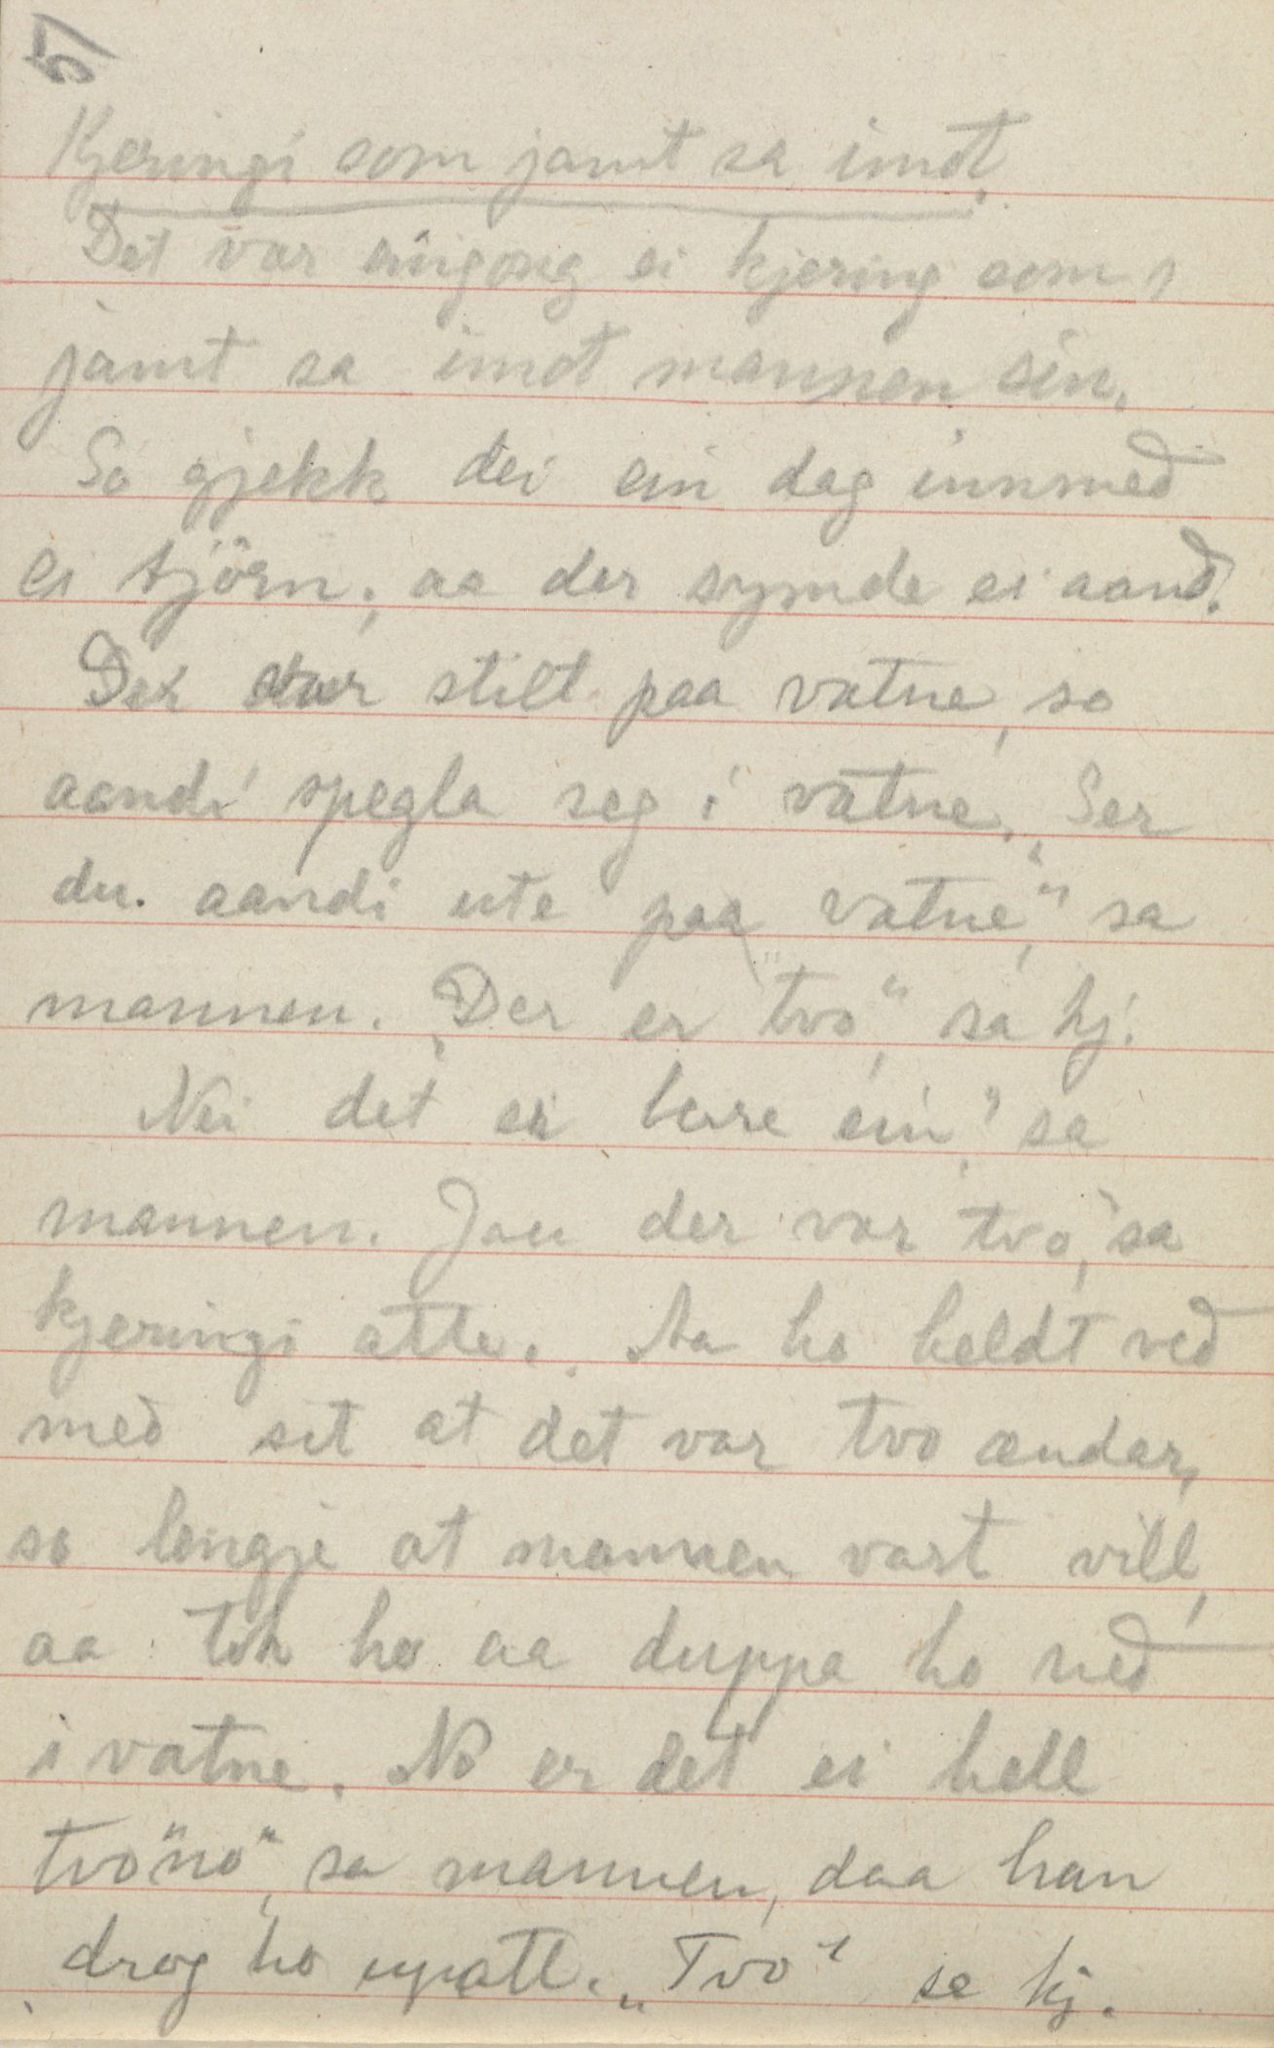 57
Kjeringi som jamt sa imot.
Det var eingong ei kjering som
jamt sa imot mannen sin.
So gjekk dei ein dag innmed
ei tjörn; aa der symde ei aand.
Det var stilt paa vatne, so
aandi spegla seg i vatne. „Ser
du aandi ute paa vatne," sa
mannen. „Der er tvo," sa kj.
Nei det er berre ein," sa
mannen. Jau der var tvo," sa
kjeringi atte. Aa ho heldt ved
med sit at det var tvo ændar,
so lengje at mannen vart vill,
aa tok ho aa duppa ho ned
i vatne. No er det ei hell
tvo "no", sa mannen, daa han
drog ho upatt. „Tvo" sa kj.